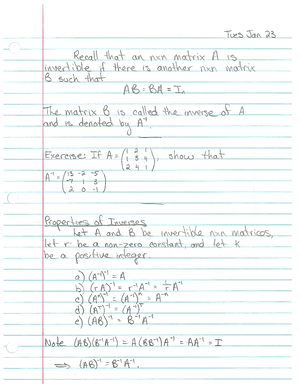 Tues Jan 23
Recall that an nxn matrix A is
invertible if there is another nxn matrix
B such that
AB = BA = Iₙ
The matrix B is called the inverse of A
and is denoted by A⁻¹.
Exercise: If A = (1 2 1; 1 3 4; 2 4 1), show that
A⁻¹ = (13 -2 -5; -7 1 3; 2 0 -1)
Properties of Inverses
Let A and B be invertible nxn matrices,
let r be a non-zero constant, and let k
be a positive integer.
a) (A⁻¹)⁻¹ = A
b) (rA)⁻¹ = r⁻¹A⁻¹ = 1/r A⁻¹
c) (Aⁿ)⁻¹ = (A⁻¹)ⁿ = A⁻ⁿ
d) (Aᵀ)⁻¹ = (A⁻¹)ᵀ
e) (AB)⁻¹ = B⁻¹A⁻¹
Note (AB)(B⁻¹A⁻¹) = A(BB⁻¹)A⁻¹ = AA⁻¹ = I
⟹ (AB)⁻¹ = B⁻¹A⁻¹.